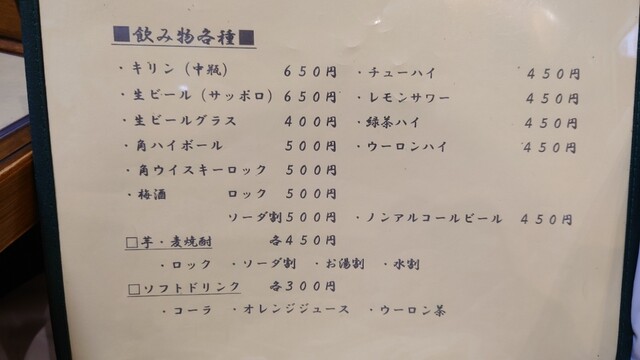 ■飲み物各種■
・キリン（中瓶） 650円 ・チューハイ 450円
・生ビール（サッポロ） 650円 ・レモンサワー 450円
・生ビールグラス 400円 ・緑茶ハイ 450円
・角ハイボール 500円 ・ウーロンハイ 450円
・角ウイスキーロック 500円
・梅酒 ロック 500円
ソーダ割500円 ・ノンアルコールビール 450円
□芋・麦焼酎 各450円
・ロック ・ソーダ割 ・お湯割 ・水割
□ソフトドリンク 各300円
・コーラ ・オレンジジュース ・ウーロン茶